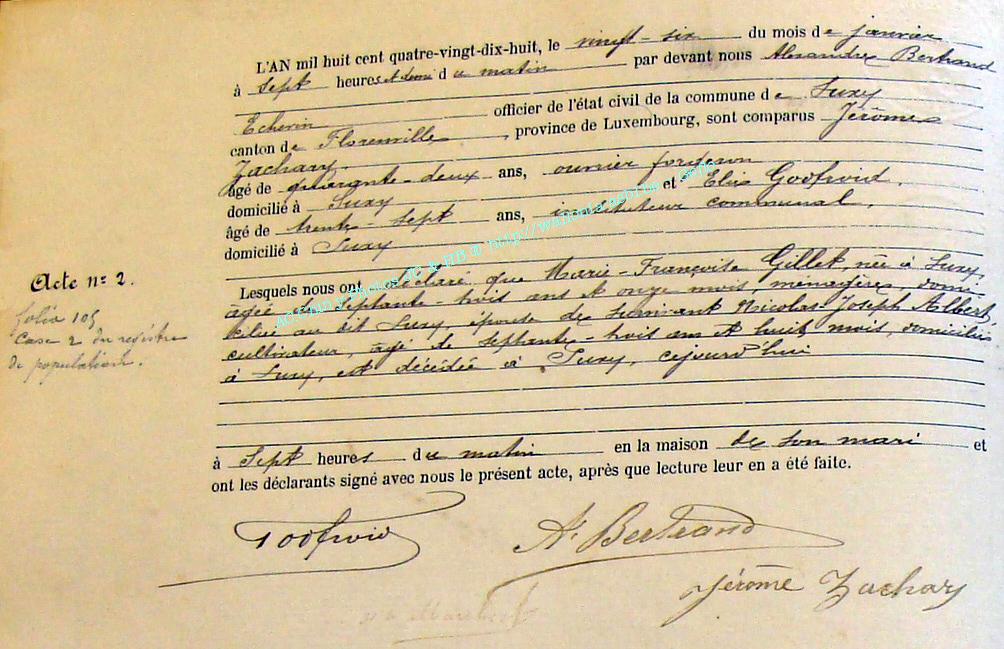 L'AN mil huit cent quatre-vingt-dix-huit, le vingt-six du mois de janvier
à sept heures et demi du matin par devant nous Alexandre Bertrand
Echevin officier de l'état civil de la commune de Suxy
canton de Florenville, province de Luxembourg, sont comparus Jérôme
Zachary
âgé de quarante-deux ans, ouvrier forgeron
domicilié à Suxy et Elie Godfroid,
âgé de trente-sept ans, instituteur communal,
domicilié à Suxy
Lesquels nous ont déclaré que Marie-Françoise Gillet, née à Suxy,
âgée de septante-trois ans et onze mois, ménagère, domi-
ciliée au dit Suxy, épouse de survivant Nicolas-Joseph Albert,
cultivateur, âgé de septante-trois ans et huit mois, domicilié
à Suxy, est décédée à Suxy, cejourd'hui
à sept heures du matin en la maison de son mari et
ont les déclarants signé avec nous le présent acte, après que lecture leur en a été faite.
Acte nº 2.
folio 105
case 2 du registre
de population.
Godfroid
A. Bertrand
Jérôme Zachary